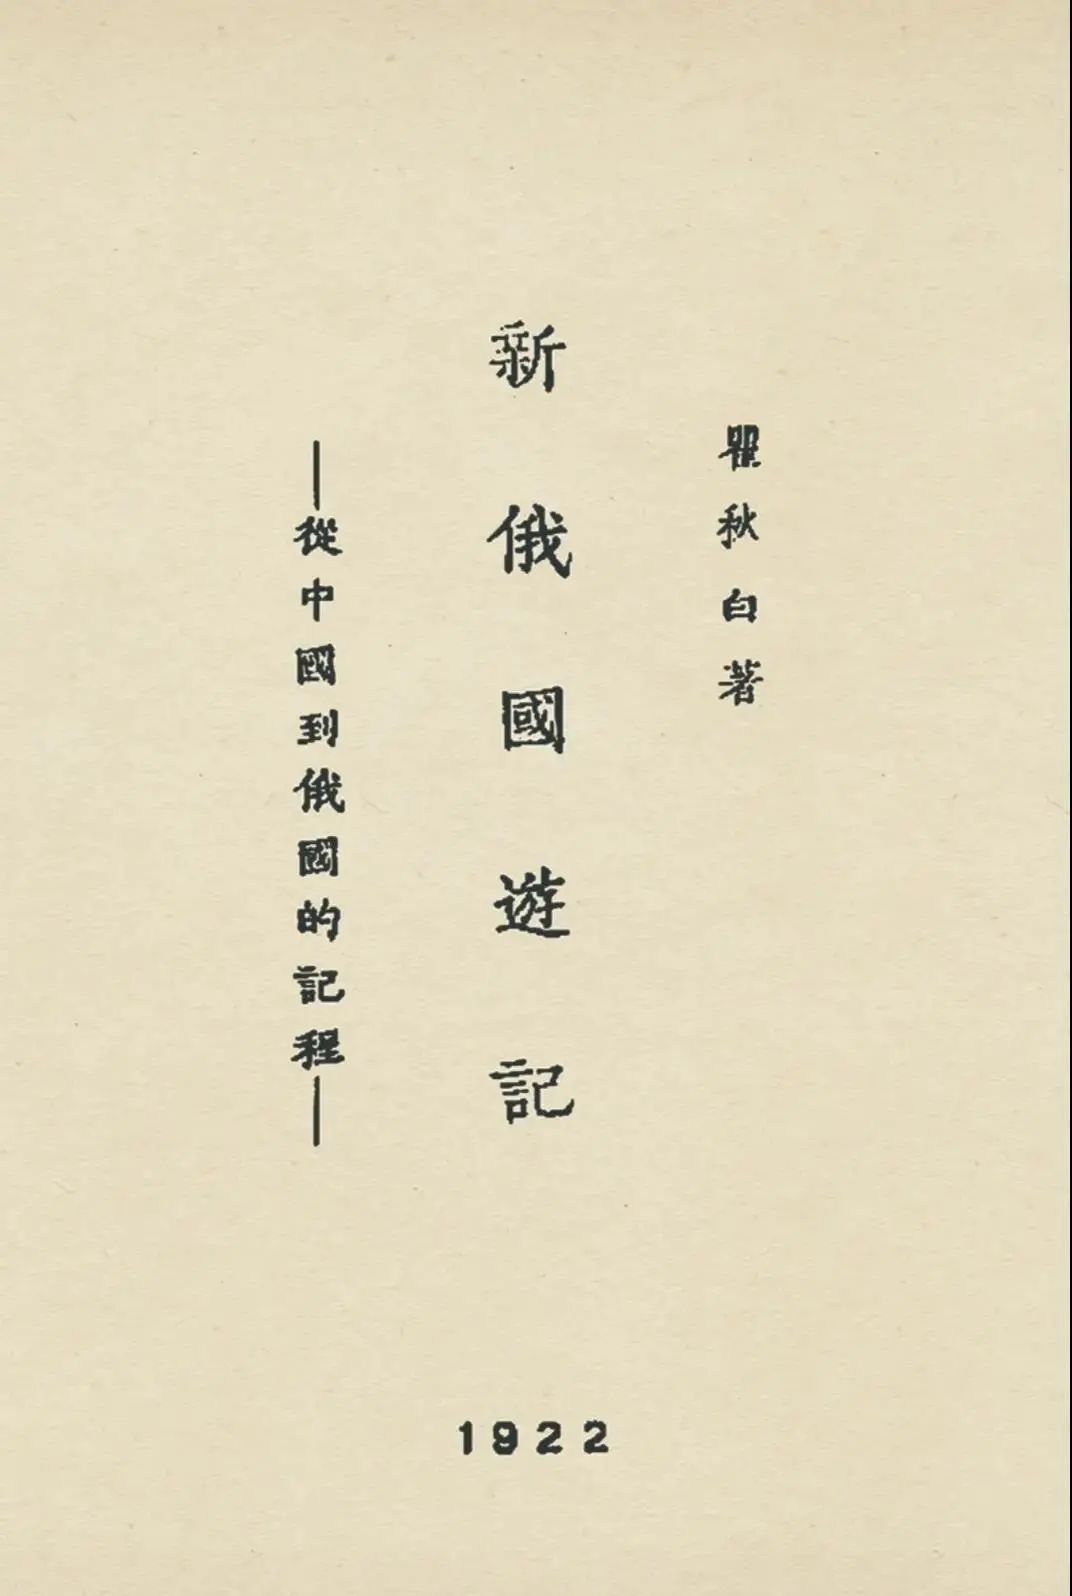 瞿秋白著
新俄國遊記
——從中國到俄國的記程——
1922